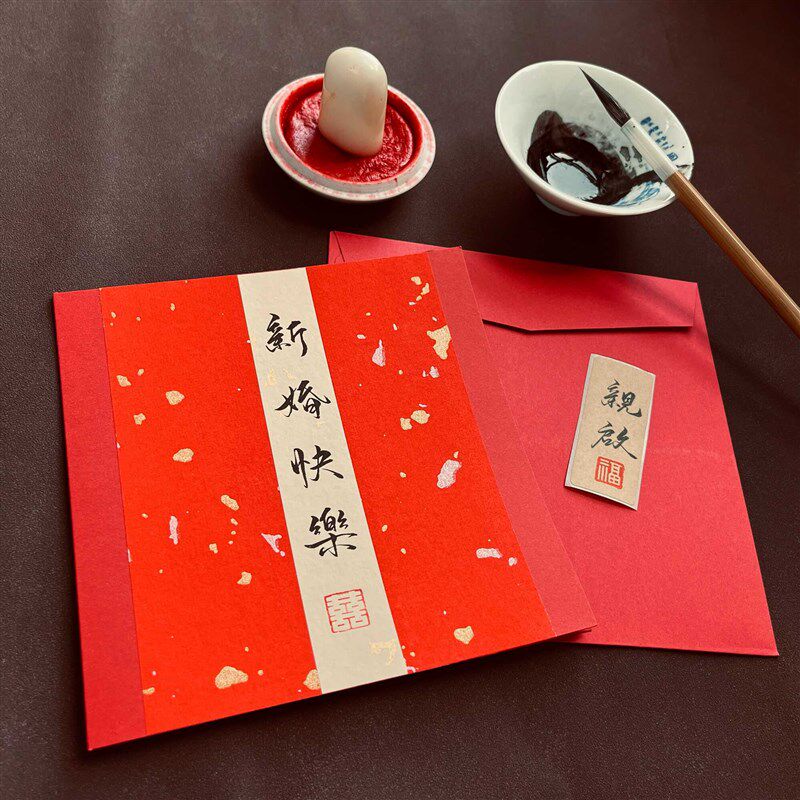 新婚快樂
囍
親啟
福